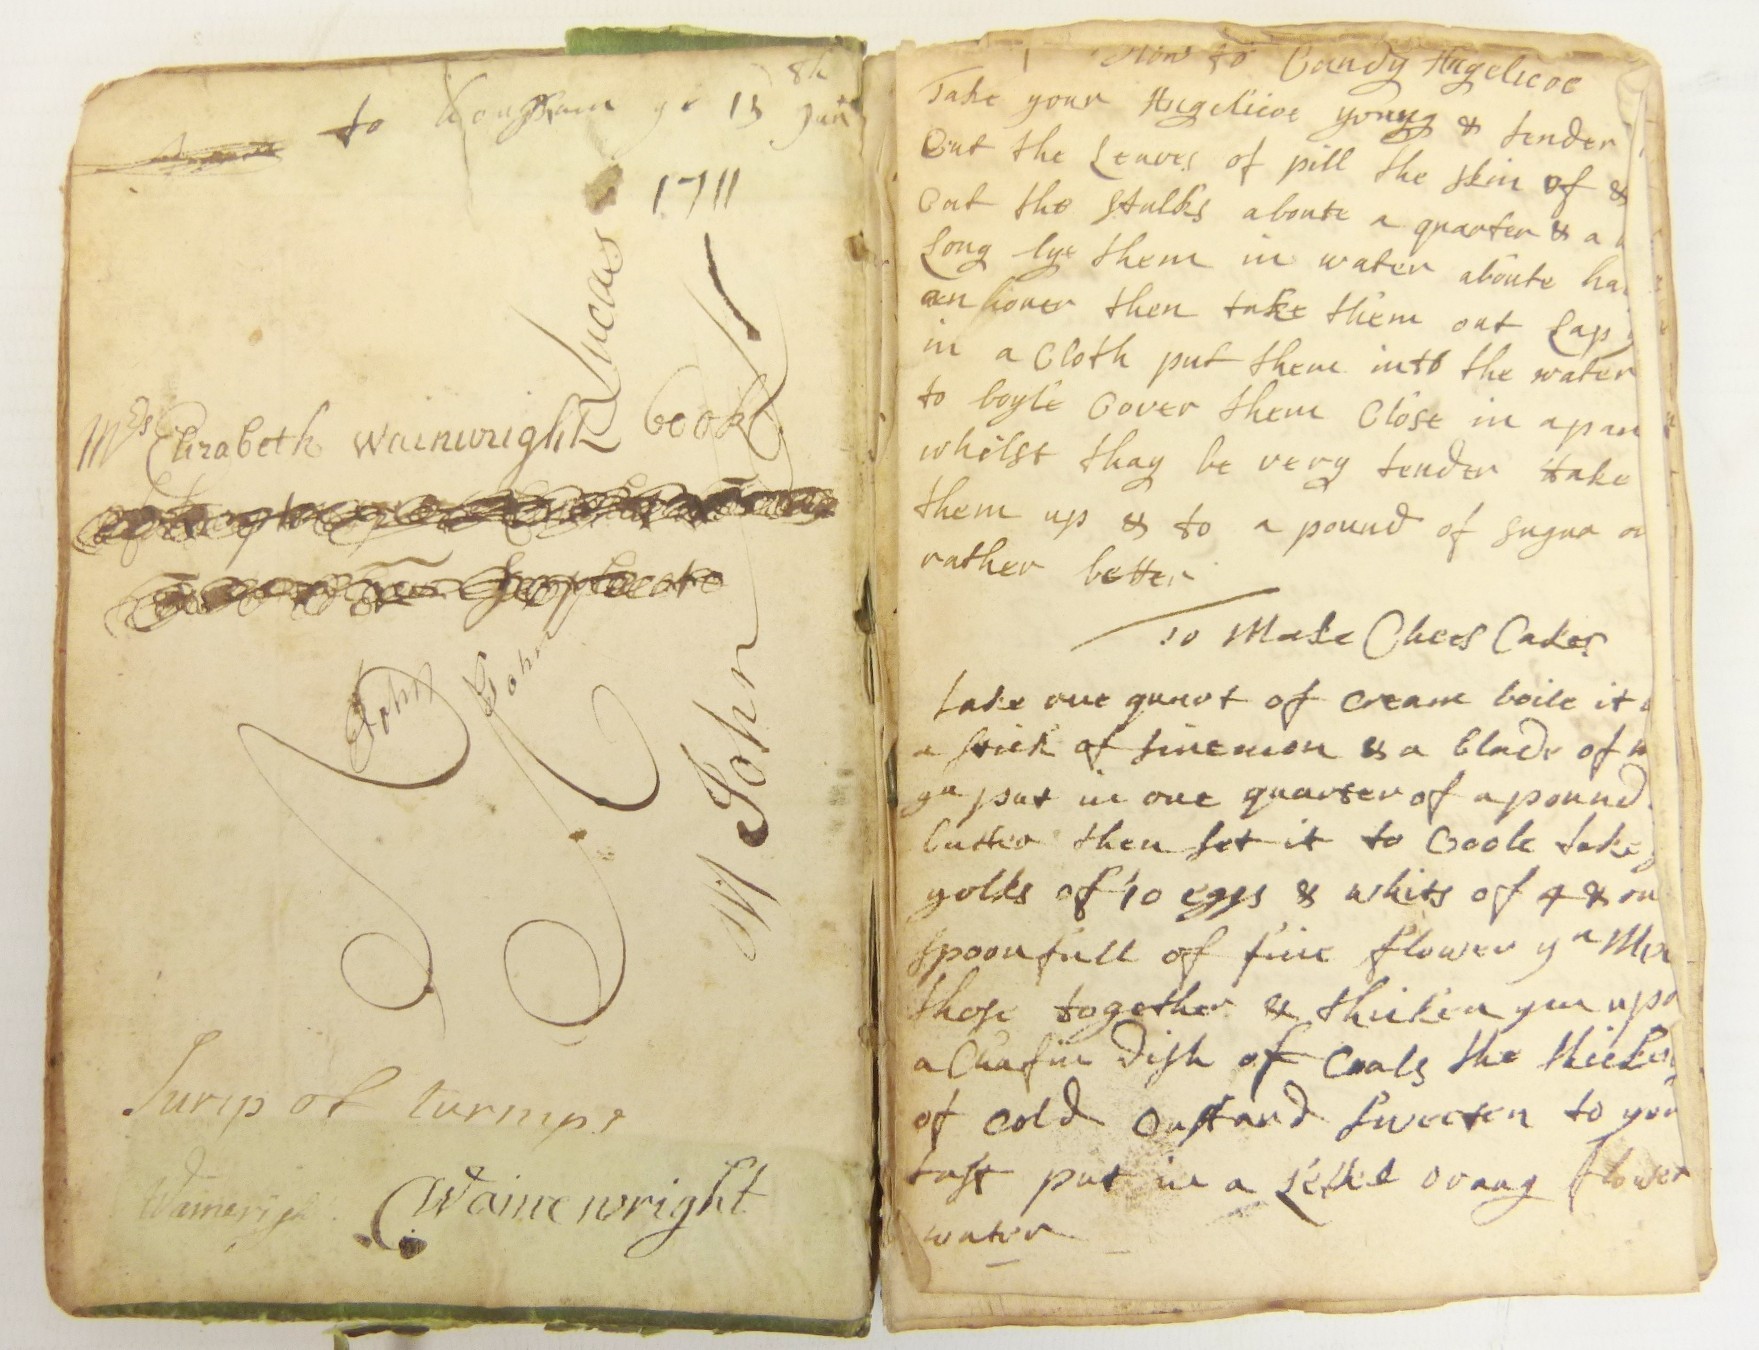 to
ye 13
1711
Lucas
Mrs Elizabeth Wainwright book
John
John
W John
Surip of turnips
Wainwrigh
Wainewright
How to Candy Angelicoe
Take your Angelicoe young & tender
Cut the Leaves of pill the skin of &
Cut the stalks aboute a quarter & a
Long lye them in water aboute ha
an houer then take them out Lap
in a Cloth put them into the water
to boyle Cover them Close in a pan
whilst thay be very tender take
them up & to a pound of sugar or
rather better
To Make Chees Cakes
take one quart of cream boile it
a stick of sinemon & a blade of m
yn put in one quarter of a pound
butter then set it to Coole take
yolks of 10 eggs & whits of 4 & on
spoonfull of fine flower yn Mix
those together & thicken ym upo
a Chafin dish of Coals the thickn
of cold Custard sweeten to your
tast put in a Littel orang flower
water